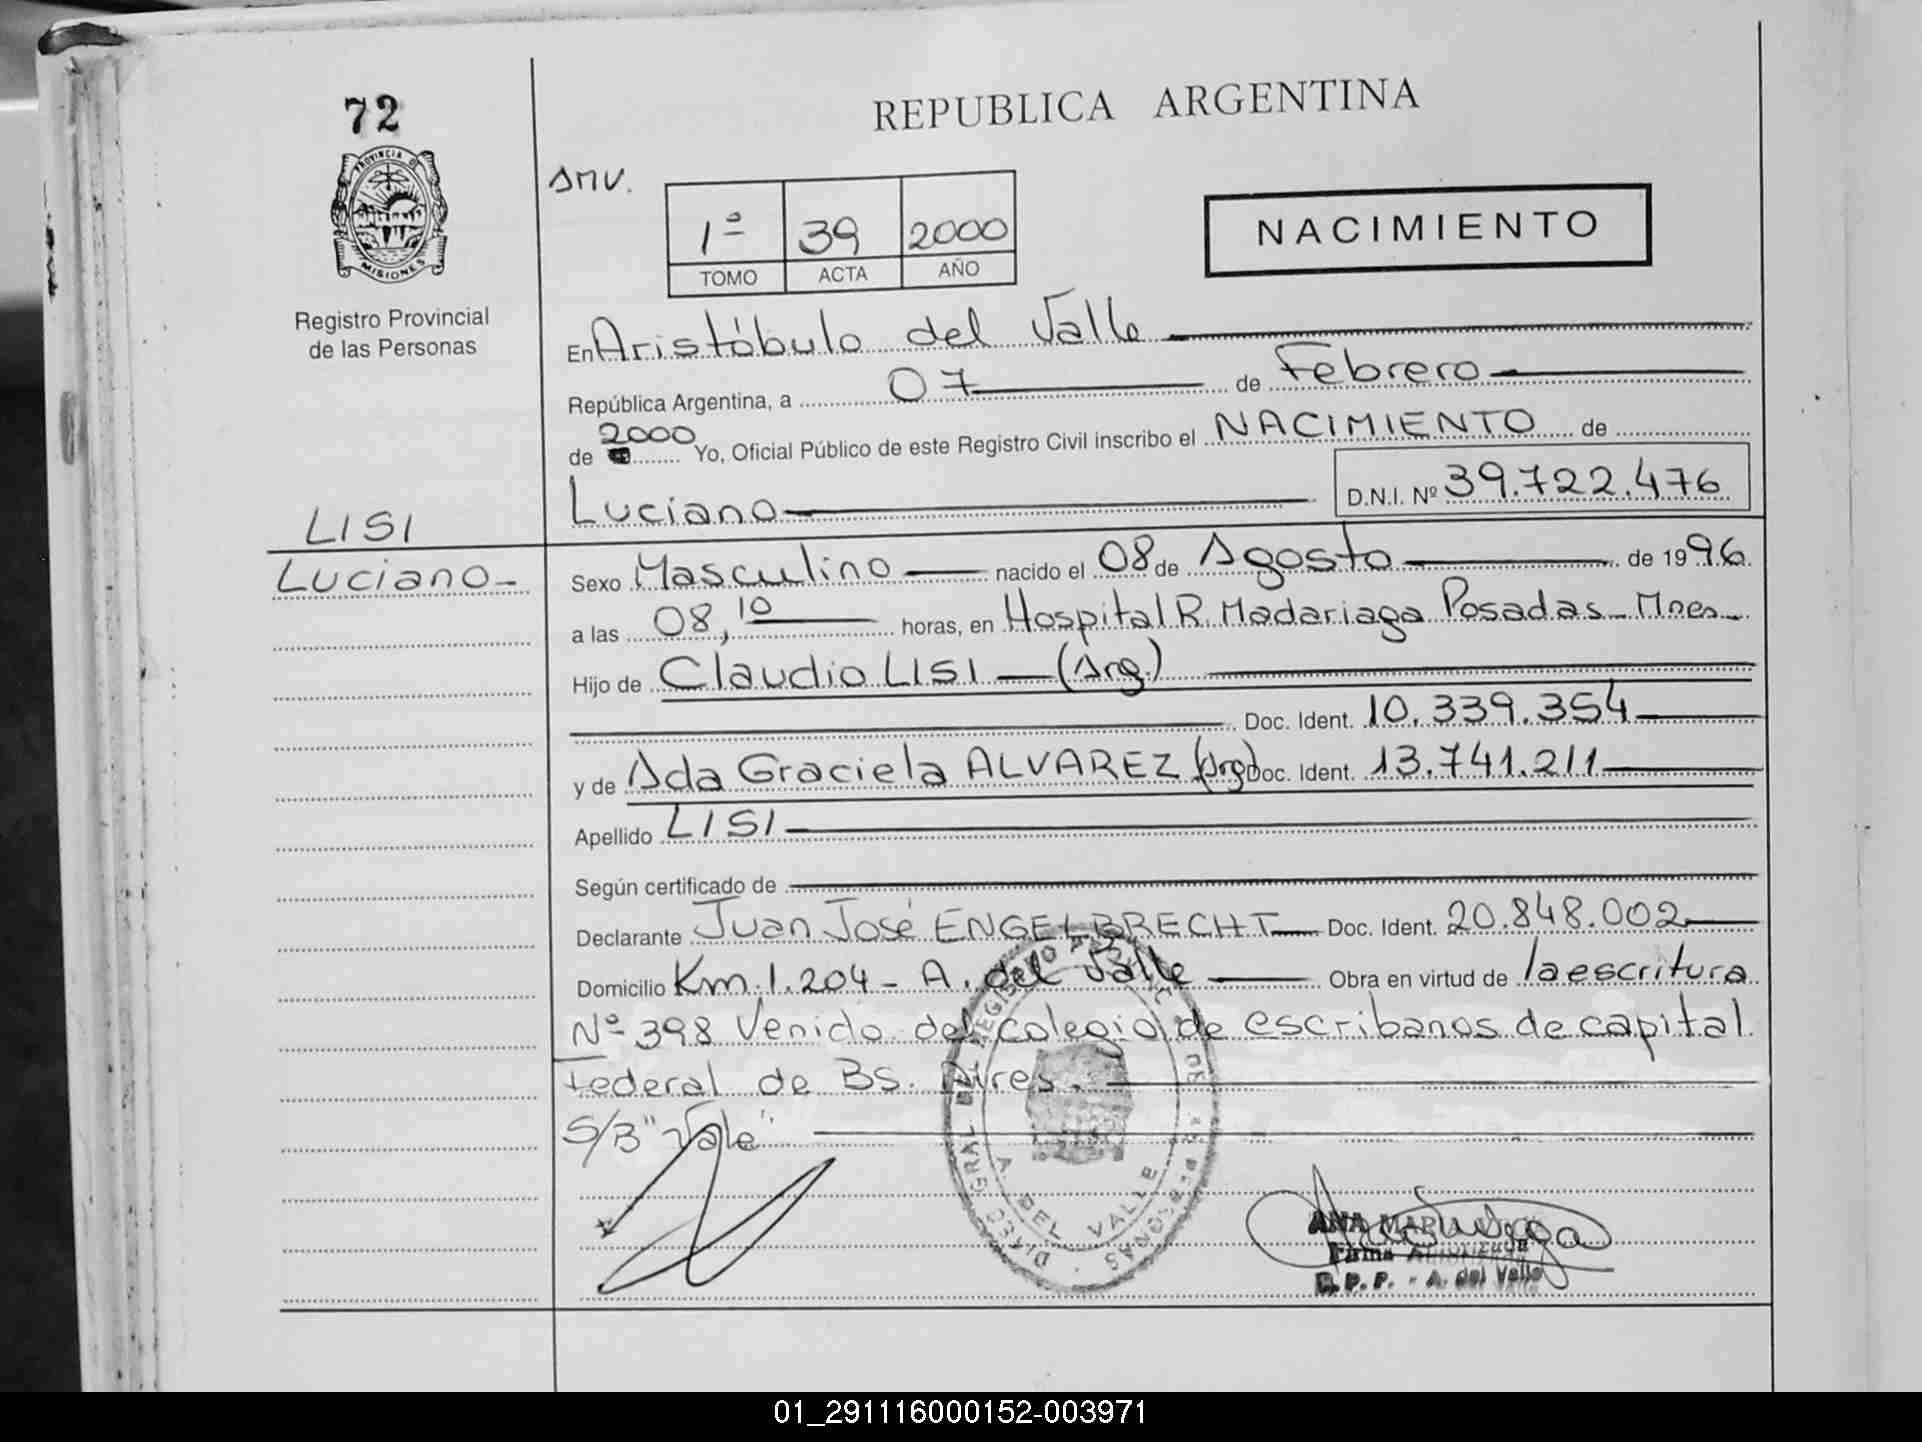 72
REPUBLICA ARGENTINA
PROVINCIA DE
MISIONES
Registro Provincial
de las Personas
AMV.
1º 39 2000
TOMO ACTA AÑO
NACIMIENTO
En Aristóbulo del Valle
República Argentina, a 07 de Febrero
de 2000 Yo, Oficial Público de este Registro Civil inscribo el NACIMIENTO de
Luciano D.N.I. Nº 39.722.476
LISI
Luciano
Sexo Masculino nacido el 08 de Agosto de 1996
a las 08,10 horas, en Hospital R. Madariaga Posadas - Mnes
Hijo de Claudio LISI (Arg.)
Doc. Ident. 10.339.354
y de Ada Graciela ALVAREZ (Arg) Doc. Ident. 13.741.211
Apellido LISI
Según certificado de
Declarante Juan José ENGELBRECHT Doc. Ident. 20.848.002
Domicilio Km. 1.204 - A. del Valle Obra en virtud de la escritura
Nº 398 Venido del colegio de escribanos de capital
federal de Bs. Aires.
S/B "Vale"
A. DEL VALLE
ANA MARIA
Firma Autorizada
D.P.P. - A. del Valle
01_291116000152-003971